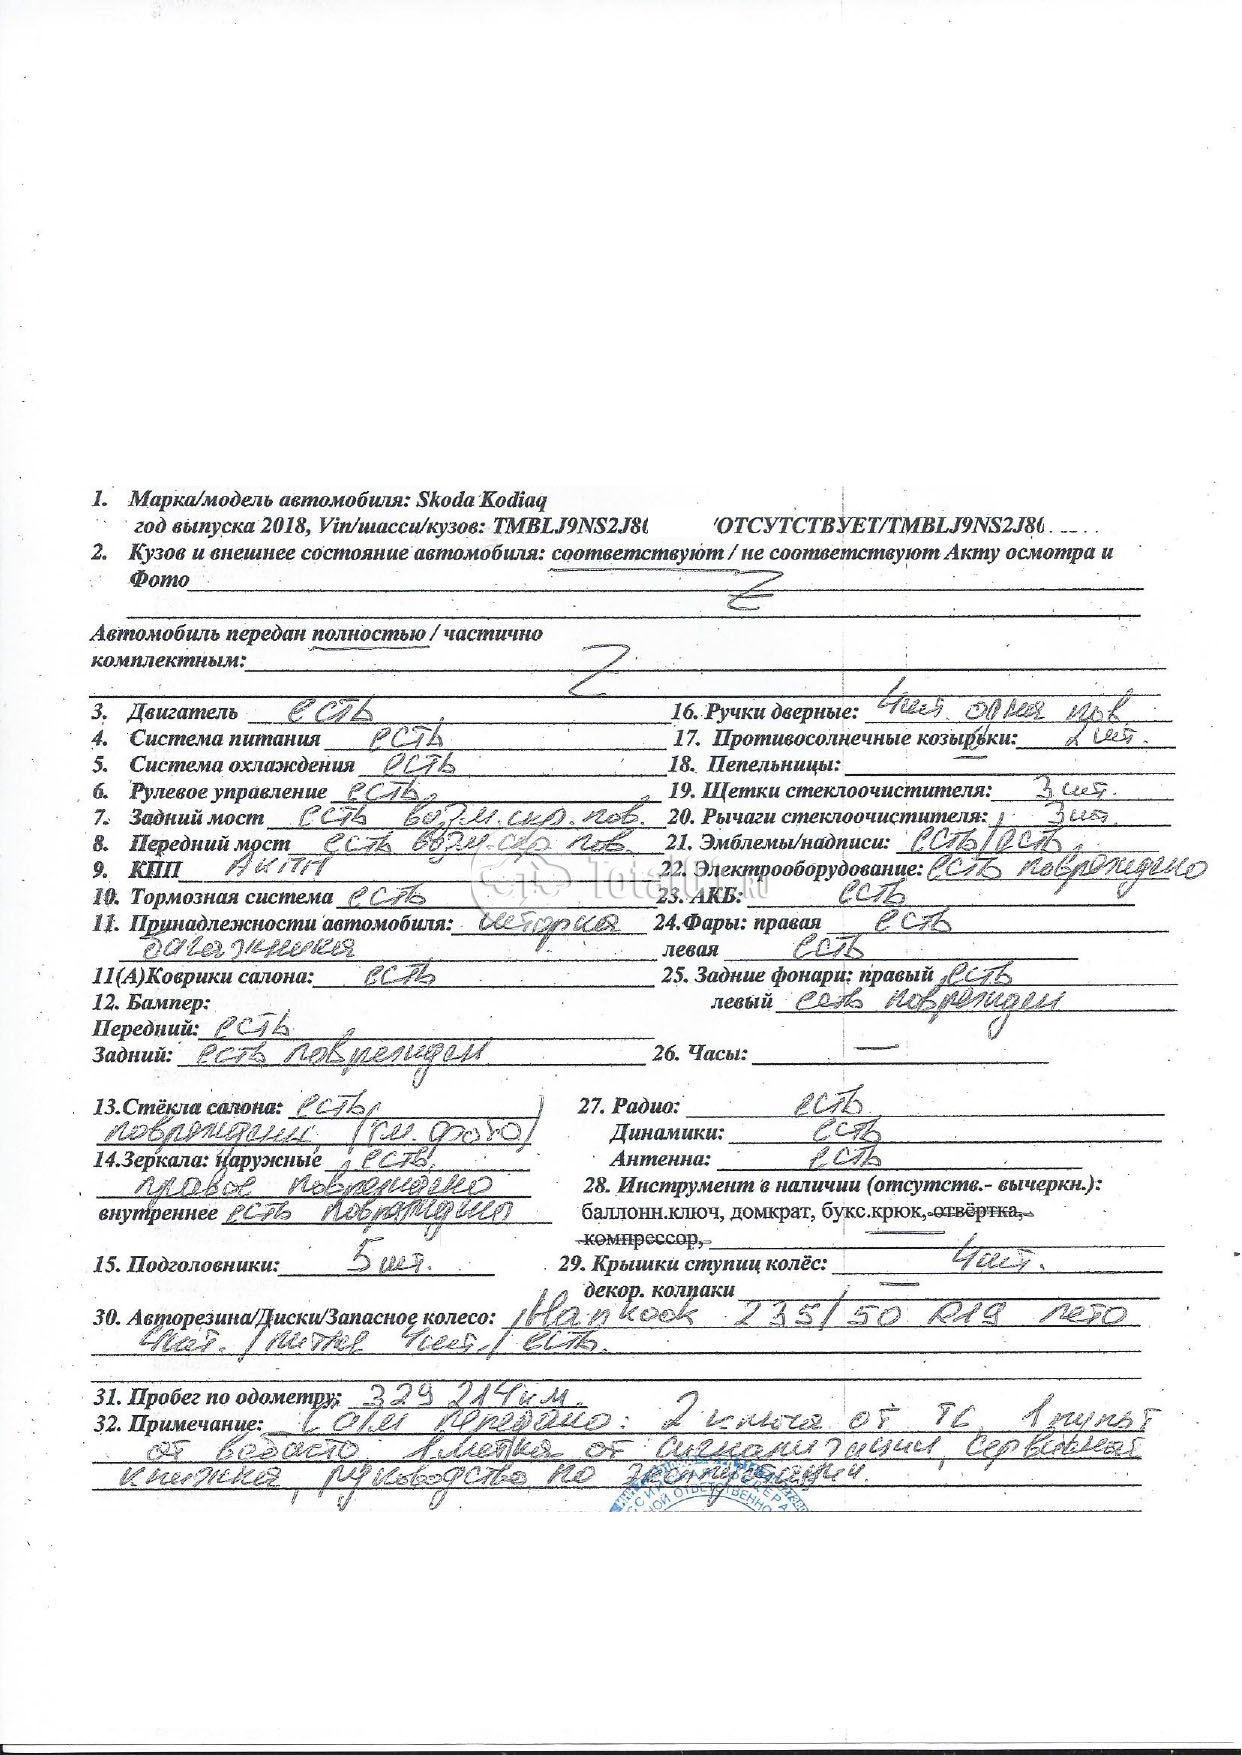 1. Марка/модель автомобиля: Skoda Kodiaq
год выпуска 2018, Vin/шасси/кузов: TMBLJ9NS2J8 /ОТСУТСТВУЕТ/TMBLJ9NS2J8
2. Кузов и внешнее состояние автомобиля: соответствуют / не соответствуют Акту осмотра и
Фото Z
Автомобиль передан полностью / частично
комплектным: Z
3. Двигатель есть
16. Ручки дверные: 4шт. одна пов.
4. Система питания есть
17. Противосолнечные козырьки: 2 шт.
5. Система охлаждения есть
18. Пепельницы: —
6. Рулевое управление есть
19. Щетки стеклоочистителя: 3 шт.
7. Задний мост есть возм. скр. пов.
20. Рычаги стеклоочистителя: 3шт.
8. Передний мост есть возм. скр пов.
21. Эмблемы/надписи: есть/есть
9. КПП АКПП
22. Электрооборудование: есть повреждено
10. Тормозная система есть
23. АКБ: есть
11. Принадлежности автомобиля: шторка
багажника
24.Фары: правая есть
левая есть
11(А)Коврики салона: есть
25. Задние фонари: правый есть
левый есть поврежден
12. Бампер:
Передний: есть
Задний: есть поврежден
26. Часы: —
13.Стёкла салона: есть,
повреждены (см. фото)
27. Радио: есть
Динамики: есть
Антенна: есть
14.Зеркала: наружные есть,
правое повреждено
внутреннее есть повреждено
28. Инструмент в наличии (отсутств.- вычеркн.):
баллонн.ключ, домкрат, букс.крюк, отвёртка,
компрессор,
15. Подголовники: 5 шт.
29. Крышки ступиц колёс: 4шт.
декор. колпаки —
30. Авторезина/Диски/Запасное колесо: Hankook 235/50 R19 лето
4шт. / литые 4шт./ есть.
31. Пробег по одометру: 329 214км.
32. Примечание: С а/м передано: 2 ключа от ТС, 1 пульт
от 1 метка от сигнализации, сервисная
книжка, руководство по эксплуатации.
Total01.RU